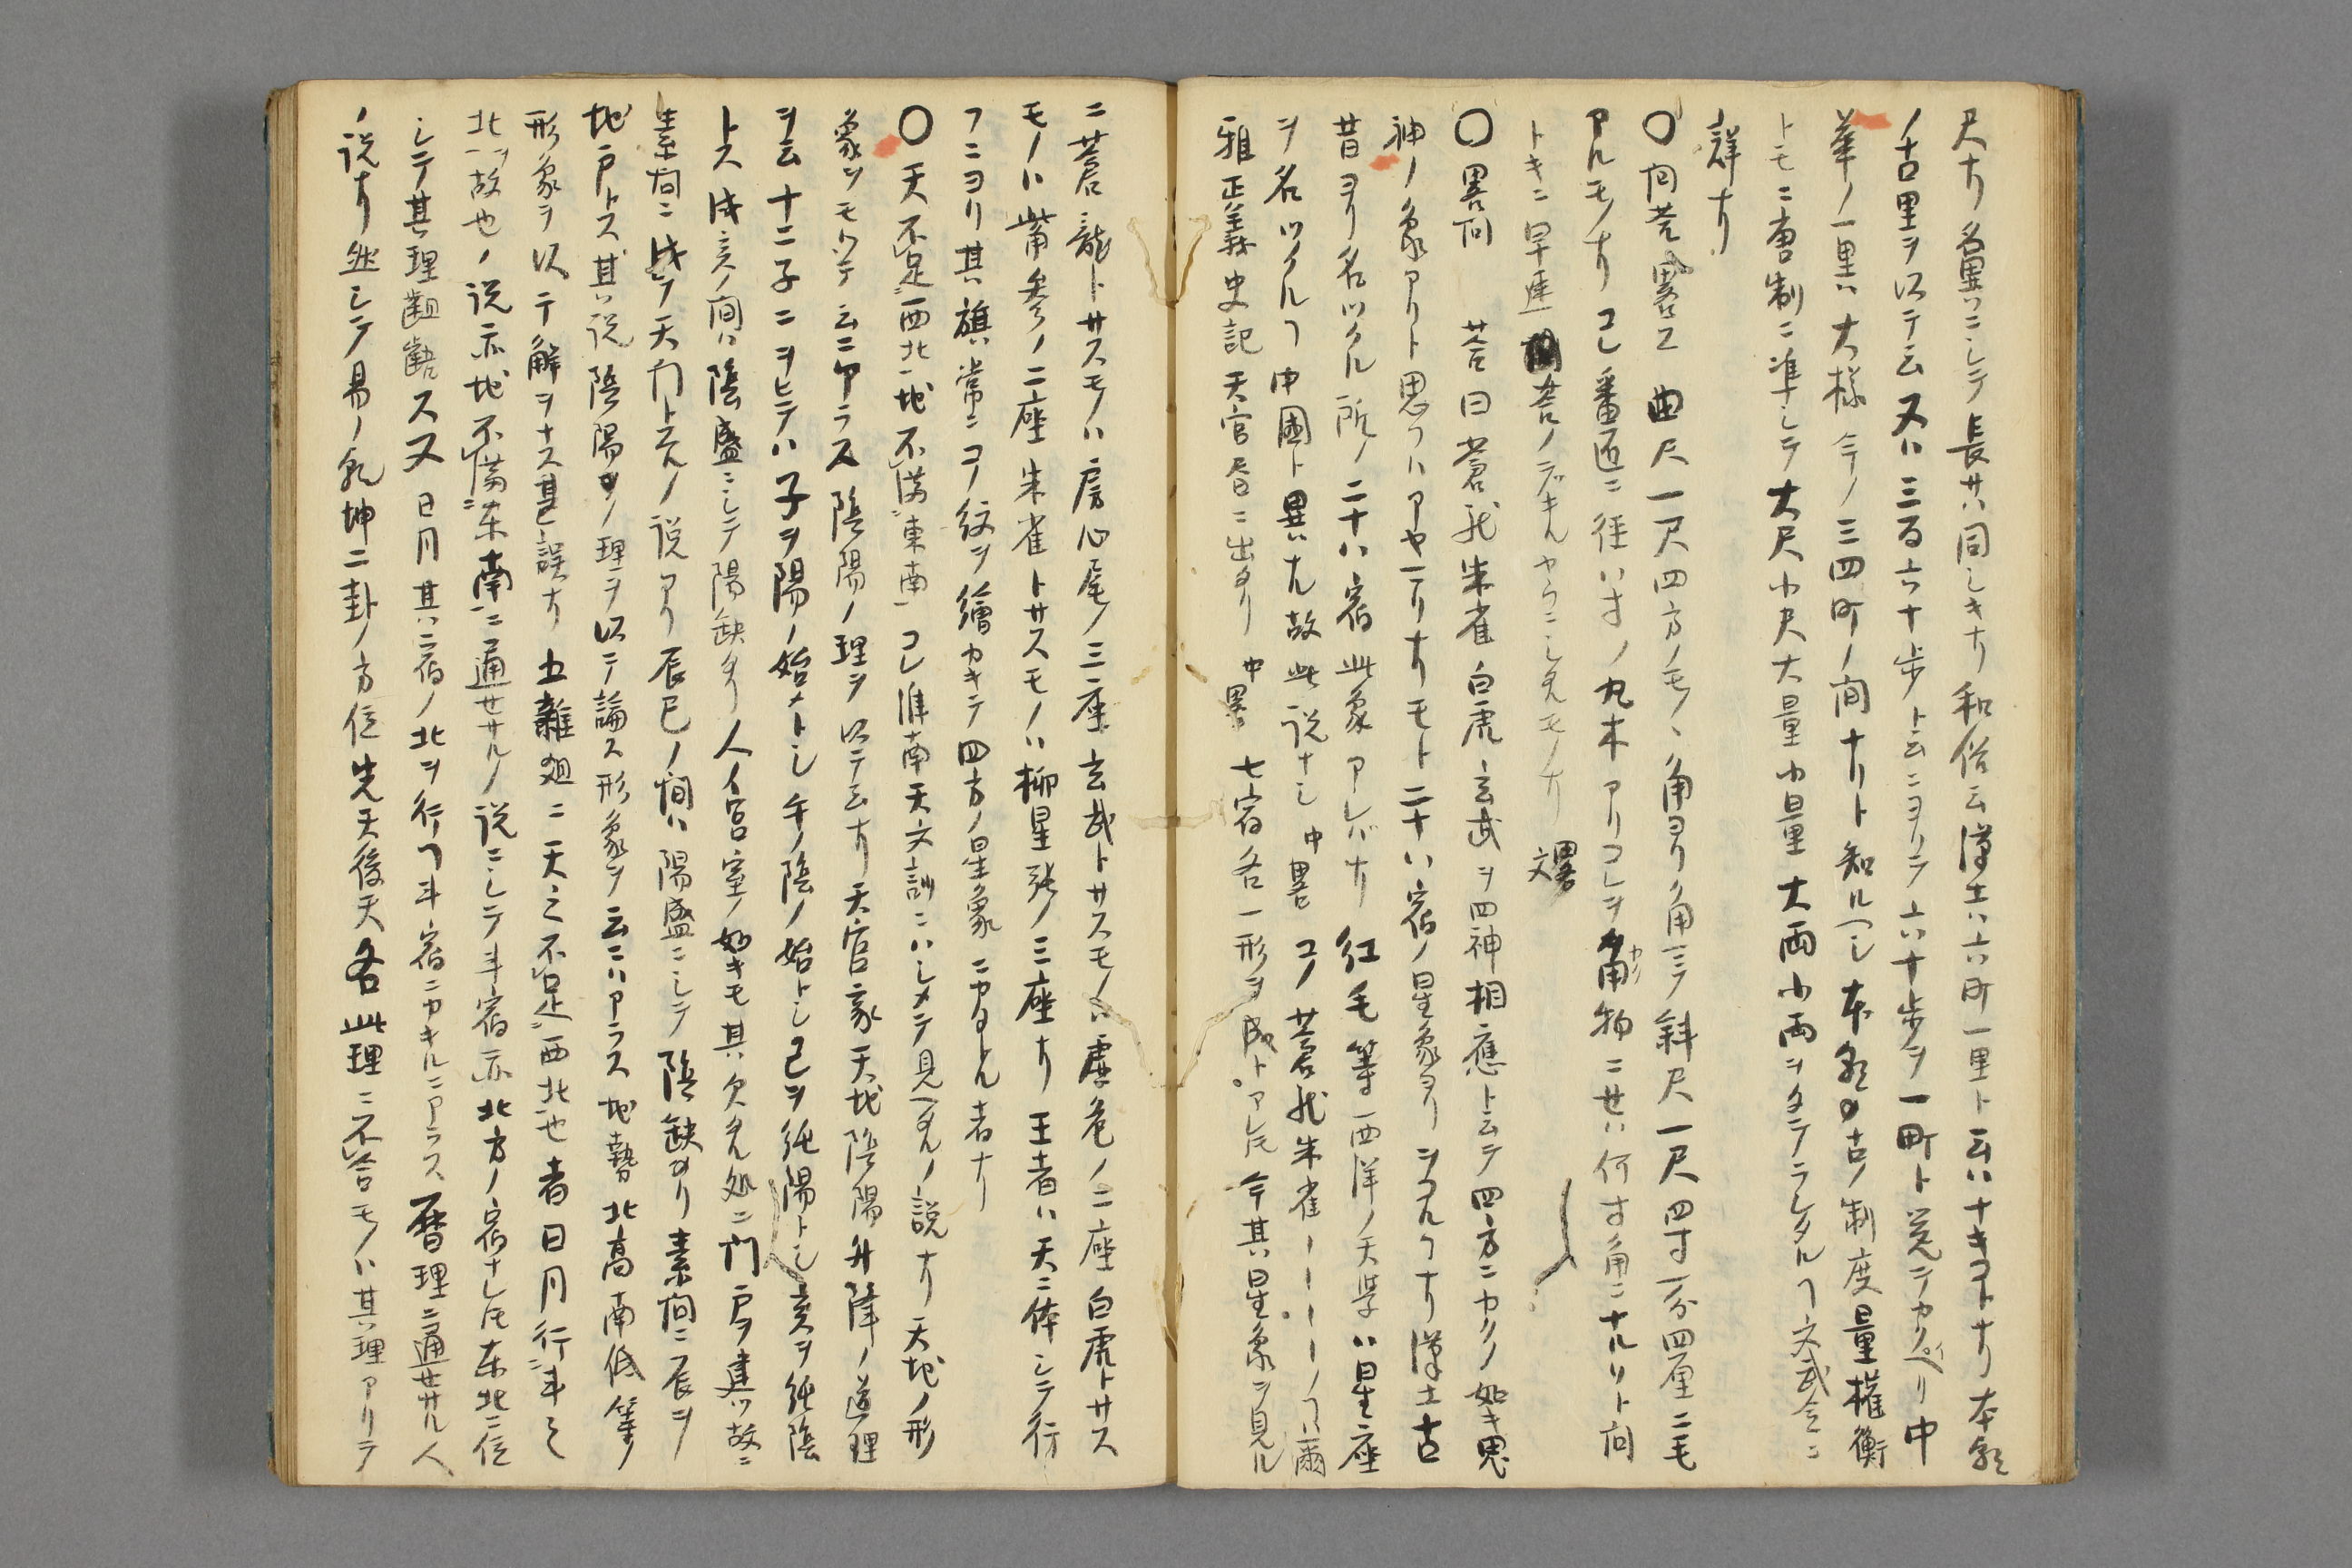 尺ナリ名異ニシテ長サハ同シキナリ和俗云漢土ハ六町一里ト云ハナキコトナリ本朝
ノ古里ヲ以テ云又ハ三百六十歩ト云ニヨリテ六十歩ヲ一町ト覚テカク云ヘリ中
華ノ一里ハ大様今ノ三四町ノ間ナリト知ルヘシ本朝ノ古ノ制度量権衡
トモニ唐制ニ準シテ大尺小尺大量小量大両小両ヲタテラレタルコト文武令ニ
詳ナリ
〇問答畧之 曲尺一尺四方ノモノヽ角ヨリ角ミテ斜尺一尺四寸一分四厘二毛
アルモノナリコレ番匠ニ径ハ寸ノ丸木アリコレヲ角物ニセハ何寸角ニナルリト問
トキニ早速答ノデキルヤウニシタモノナリ 文畧
〇畧問 答曰蒼龍朱雀白虎玄武ヲ四神相應ト云テ四方ニカクノ如キ鬼
神ノ象アリト思フハアヤマリナリモト二十八宿ノ星象ヨリヲコルコトナリ漢土古
昔ヨリ名ツクル所ノ二十八宿此象アレバナリ紅毛等西洋ノ天学ハ星座
ヲ名ツクルコト中國ト異ナル故此説ナシ 中畧 コノ蒼龍朱雀ーーーーノコトハ爾
雅正義史記天官書ニ出タリ 中畧 七宿各一形ヲ成トアレ𪜈今其星象ヲ見ル
ニ蒼龍トサスモノハ房心尾ノ三座玄武トサスモノハ虚危ノ二座白虎トサス
モノハ觜参ノ二座朱雀トサスモノハ柳星張ノ三座ナリ王者ハ天ニ体シテ行
フニヨリ其旗常ニコノ紋ヲ繪カキテ四方ノ星象ニカタトル者ナリ
〇天不足西北地不満東南コレ淮南天文訓ニハシメテ見ヘタルノ説ナリ天地ノ形
象ヲモツテ云ニアラス陰陽ノ理ヲ以テ云ナリ天官家天地陰陽升降ノ道理
ヲ云十二子ニヲヒテハ子ヲ陽ノ始メトシ午ノ陰ノ始トシ巳ヲ純陽トシ亥ヲ純陰
トス戌亥ノ間ハ陰盛ニシテ陽缺タリ人イ宮室ノ如キモ其欠タル処ニ門戸ヲ建ツ故ニ
素問ニ戌ヲ天門トスルノ説アリ辰巳ノ間ハ陽盛ニシテ陰缺タリ素問ニ辰ヲ
地戸トス其説陰陽ノ理ヲ以テ論ス形象ヲ云ニハアラス地勢北高南低等ノ
形象ヲ以テ解ヲナス甚誤ナリ五雜爼ニ天之不足西北也者日月行斗之
北ヲ故也ノ説亦地不満東南ニ通セサルノ説ニシテ斗宿亦北方ノ宿ナレ𪜈東北ニ位
シテ其理齟齬ス又日月其宿ノ北ヲ行コト斗宿ニカキルニアラス暦理ニ通セサル人
ノ説ナリ然シテ易ノ乾坤二卦ノ方位先天後天各此理ニ不合モノハ其理アリテ